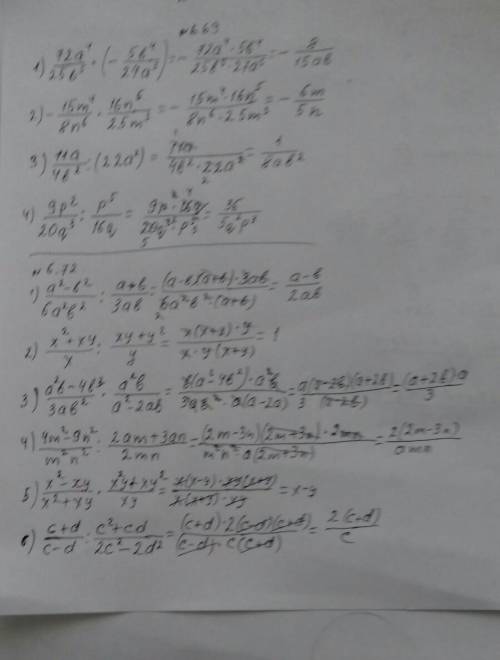 №6.69
1) 72a⁴/25b⁵ · (− 5b⁴/27a⁵) = − 72a⁴·5b⁴/25b⁵·27a⁵ = − 8/15ab
2) − 15m⁴/8n⁶ · 16n⁵/25m³ = − 15m⁴·16n⁵/8n⁶·25m³ = − 6m/5n
3) 11a/4b² : (22a²) = 11a/4b²·22a² = 1/8ab²
4) 9p²/20q³ : p⁵/16q = 9p²·16q/20q³·p⁵ = 36/5q²p³
№6.72
1) a²-b²/6a²b² : a+b/3ab = (a-b)(a+b)·3ab/6a²b²·(a+b) = a-b/2ab
2) x²+xy/x : xy+y²/y = x(x+y)·y/x·y(x+y) = 1
3) a²b-4b³/3ab² · a²b/a²-2ab = b(a²-4b²)·a²b/3ab²·a(a-2a) = a(a-2b)(a+2b)/3(a-2b) = (a+2b)a/3
4) 4m²-9n²/m²n² : 2am+3an/2mn = (2m-3n)(2m+3n)·2mn/m²n²·a(2m+3n) = 2(2m-3n)/amn
5) x²-xy/x²+xy · x²y+xy²/xy = x(x-y)·xy(x+y)/x(x+y)·xy = x-y
6) c+d/c-d : c²+cd/2c²-2d² = (c+d)·2(c-d)(c+d)/(c-d)·c(c+d) = 2(c+d)/c